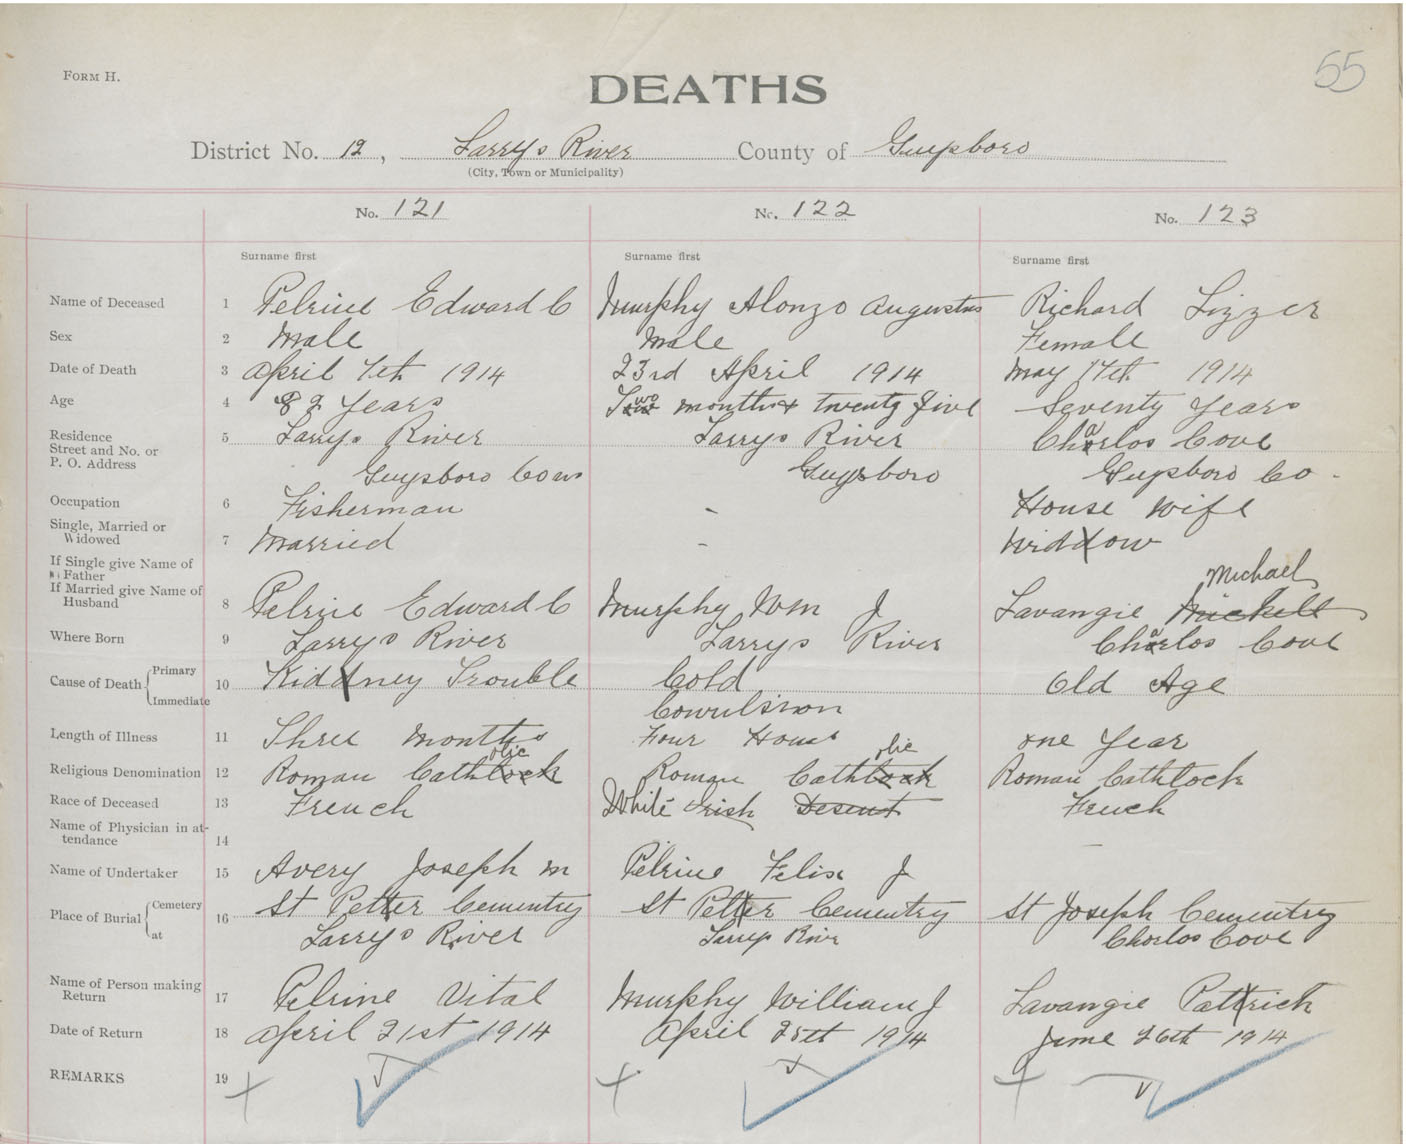 55
FORM H.
DEATHS
District No. 12, Larrys River County of Guysboro
(City, Town or Municipality)
No. 121 No. 122 No. 123
Surname first Surname first Surname first
Name of Deceased 1 Pelrine Edward C Murphy Alonzo Augustus Richard Lizzer
Sex 2 Male Male Female
Date of Death 3 April 7th 1914 23rd April 1914 May 17th 1914
Age 4 82 Years Two months & twenty five Seventy Years
Residence 5 Larrys River Larrys River Charlos Cove
Street and No. or
P. O. Address Guysboro Guysboro Guysboro Co.
Occupation 6 Fisherman - House Wife
Single, Married or
Widowed 7 Married - Widdow
If Single give Name of
Father
If Married give Name of Michael
Husband 8 Pelrine Edward C Murphy Wm J Lavangie Mickell
Where Born 9 Larrys River Larrys River Charlos Cove
Cause of Death Primary 10 Kiddney Trouble Cold Old Age
Immediate Convulsion
Length of Illness 11 Three months Four Hours one Year
olic olic
Religious Denomination 12 Roman Cathlock Roman Cathlock Roman Cathlock
Race of Deceased 13 French White Irish Desent French
Name of Physician in at-
tendance 14
Name of Undertaker 15 Avery Joseph M Pelrine Felix J
Place of Burial Cemetery 16 St Petter Cementry St Petter Cementry St Joseph Cementry
at Larrys River Larrys River Charlos Cove
Name of Person making
Return 17 Pelrine Vital Murphy William J Lavangie Pattrick
Date of Return 18 April 21st 1914 April 25th 1914 June 26th 1914
REMARKS 19